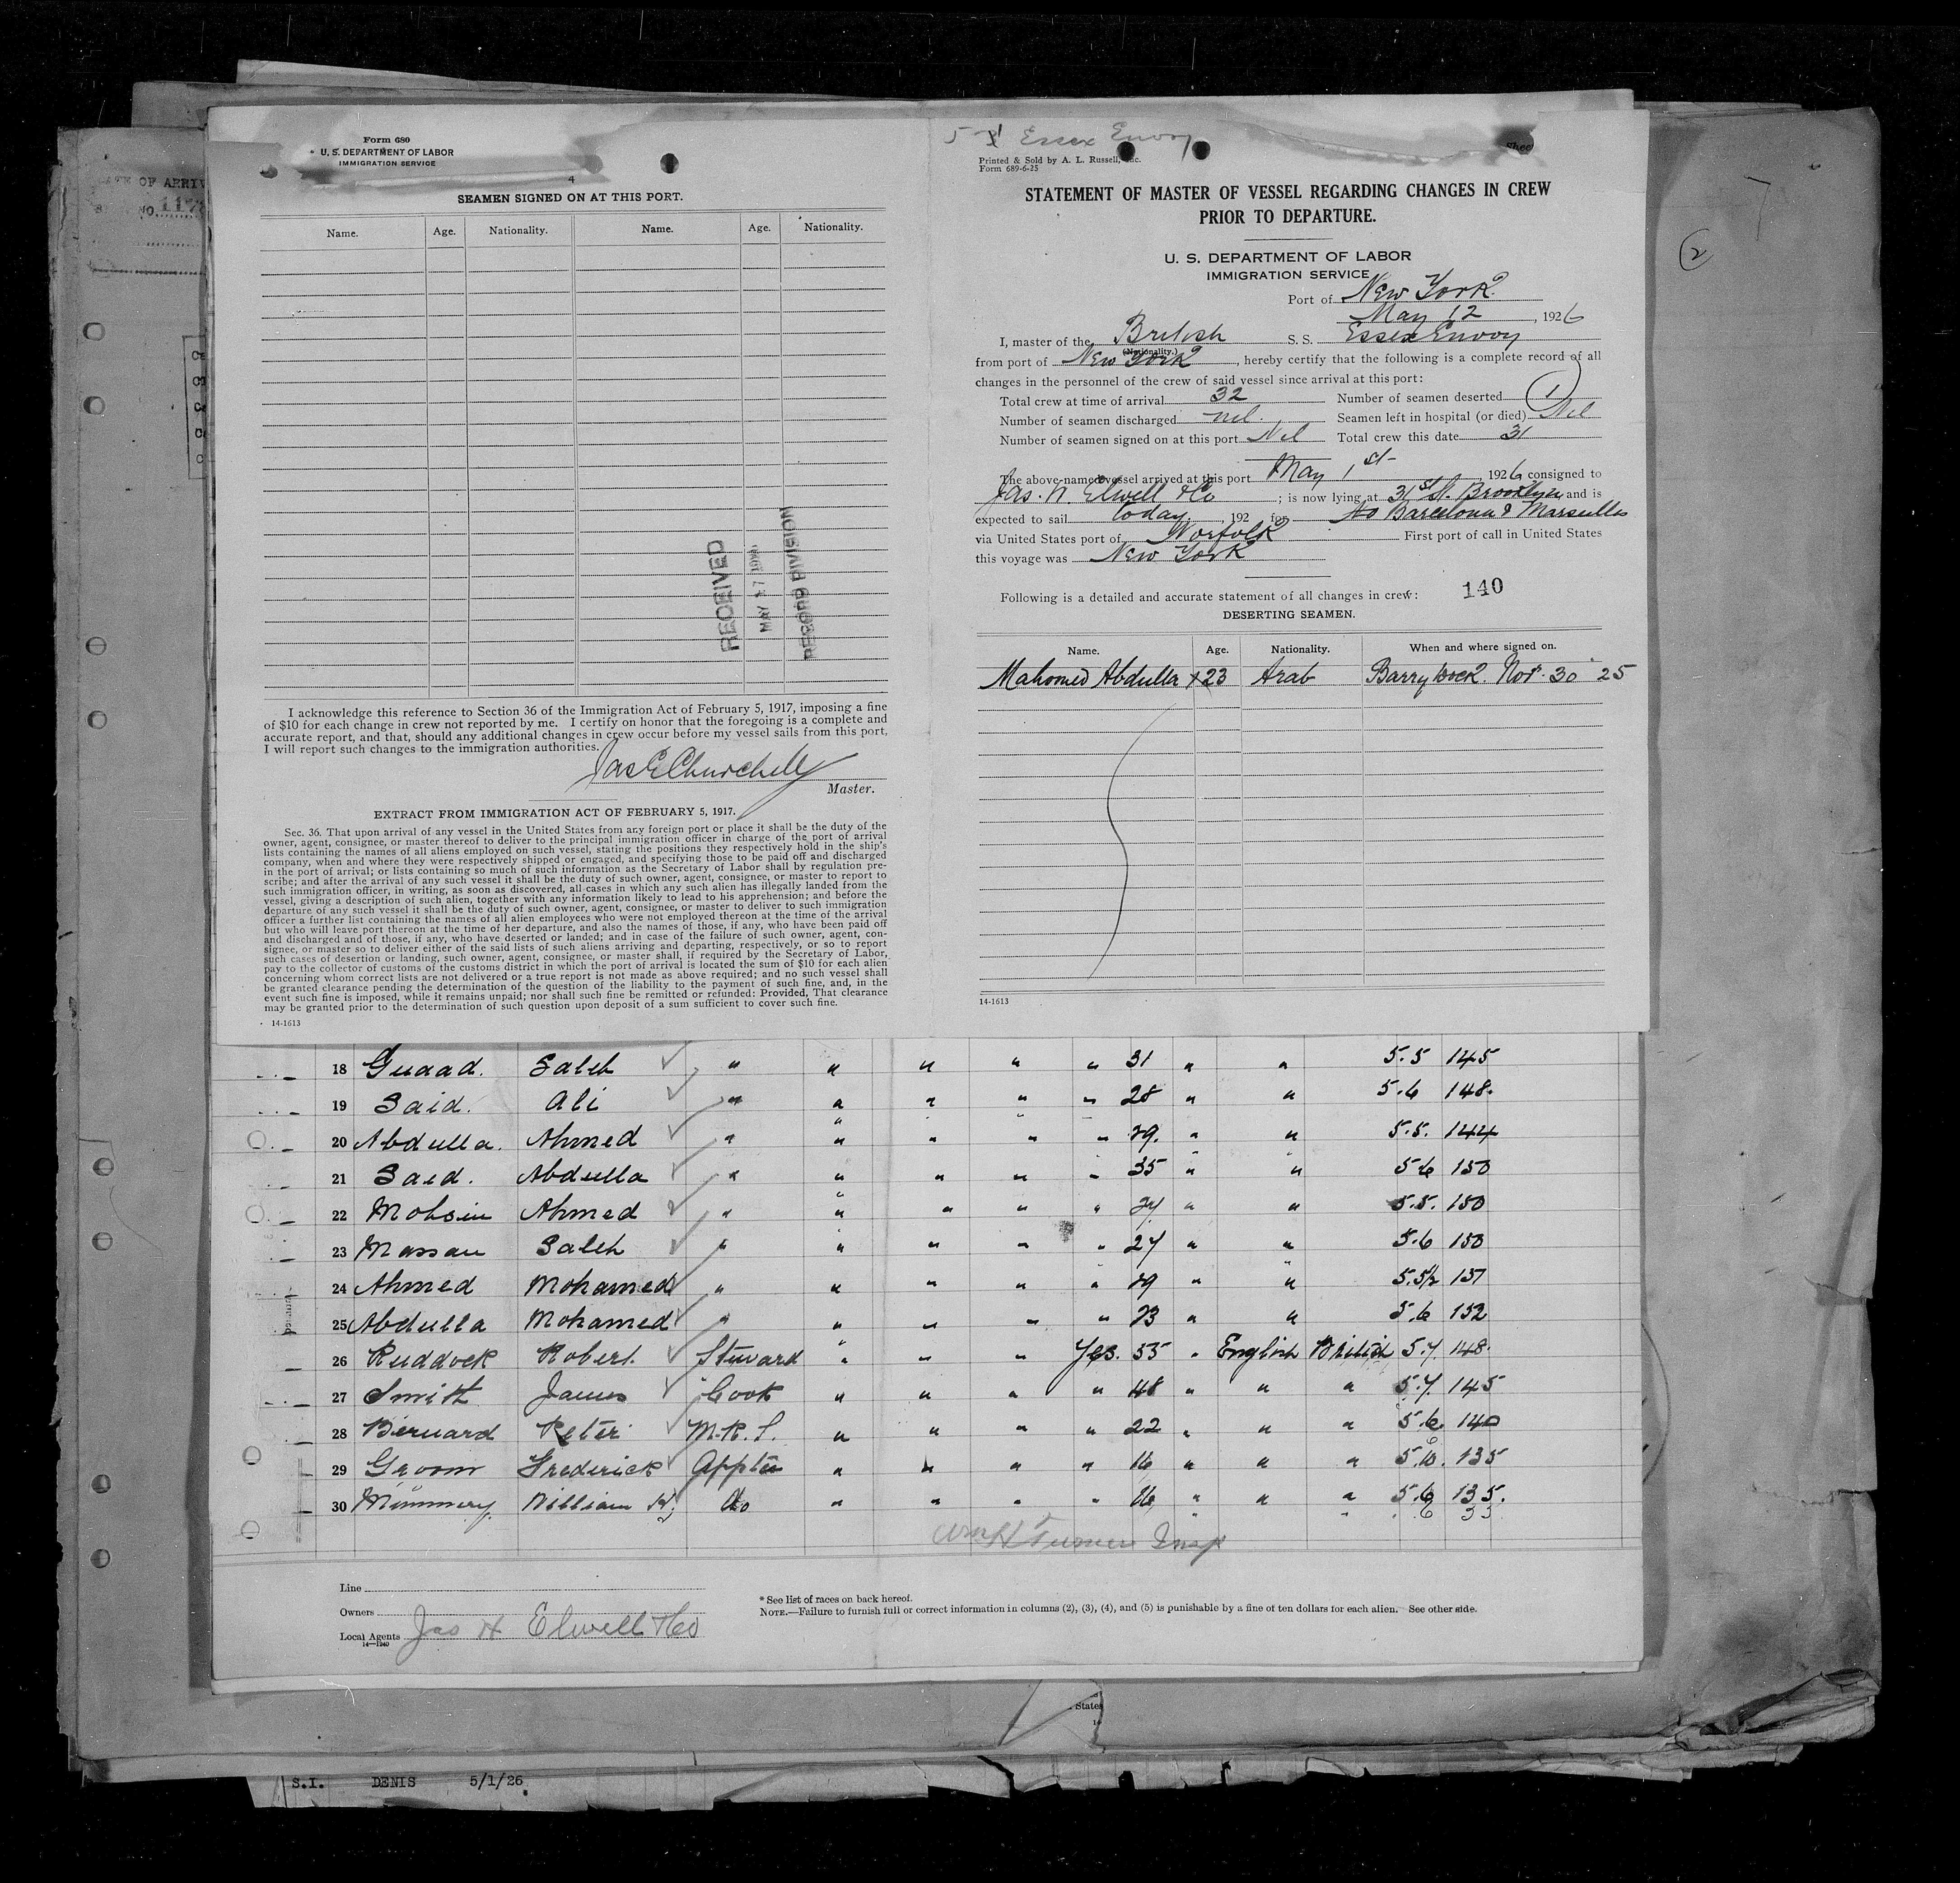 Form 680
U. S. DEPARTMENT OF LABOR
IMMIGRATION SERVICE
4
SEAMEN SIGNED ON AT THIS PORT.
Name. Age. Nationality. Name. Age. Nationality.
RECEIVED
MAY 17
RECORD DIVISION
I acknowledge this reference to Section 36 of the Immigration Act of February 5, 1917, imposing a fine
of $10 for each change in crew not reported by me. I certify on honor that the foregoing is a complete and
accurate report, and that, should any additional changes in crew occur before my vessel sails from this port,
I will report such changes to the immigration authorities.
Jas E Churchill
Master.
EXTRACT FROM IMMIGRATION ACT OF FEBRUARY 5, 1917.
Sec. 36. That upon arrival of any vessel in the United States from any foreign port or place it shall be the duty of the
owner, agent, consignee, or master thereof to deliver to the principal immigration officer in charge of the port of arrival
lists containing the names of all aliens employed on such vessel, stating the positions they respectively hold in the ship's
company, when and where they were respectively shipped or engaged, and specifying those to be paid off and discharged
in the port of arrival; or lists containing so much of such information as the Secretary of Labor shall by regulation pre-
scribe; and after the arrival of any such vessel it shall be the duty of such owner, agent, consignee, or master to report to
such immigration officer, in writing, as soon as discovered, all cases in which any such alien has illegally landed from the
vessel, giving a description of such alien, together with any information likely to lead to his apprehension; and before the
departure of any such vessel it shall be the duty of such owner, agent, consignee, or master to deliver to such immigration
officer a further list containing the names of all alien employees who were not employed thereon at the time of the arrival
but who will leave port thereon at the time of her departure, and also the names of those, if any, who have been paid off
and discharged and of those, if any, who have deserted or landed; and in case of the failure of such owner, agent, con-
signee, or master so to deliver either of the said lists of such aliens arriving and departing, respectively, or so to report
such cases of desertion or landing, such owner, agent, consignee, or master shall, if required by the Secretary of Labor,
pay to the collector of customs of the customs district in which the port of arrival is located the sum of $10 for each alien
concerning whom correct lists are not delivered or a true report is not made as above required; and no such vessel shall
be granted clearance pending the determination of the question of the liability to the payment of such fine, and, in the
event such fine is imposed, while it remains unpaid; nor shall such fine be remitted or refunded: Provided, That clearance
may be granted prior to the determination of such question upon deposit of a sum sufficient to cover such fine.
14-1613
Essex Envoy
Printed & Sold by A. L. Russell, Inc.
Form 689-6-25
STATEMENT OF MASTER OF VESSEL REGARDING CHANGES IN CREW
PRIOR TO DEPARTURE.
U. S. DEPARTMENT OF LABOR
IMMIGRATION SERVICE
Port of New York
May 12, 1926
I, master of the British S. S. Essex Envoy
(Nationality.)
from port of New York, hereby certify that the following is a complete record of all
changes in the personnel of the crew of said vessel since arrival at this port:
Total crew at time of arrival 32 Number of seamen deserted 1
Number of seamen discharged nil. Seamen left in hospital (or died) Nil
Number of seamen signed on at this port Nil Total crew this date 31
The above-named vessel arrived at this port May 1st 1926 consigned to
Jas. W. Elwell & Co ; is now lying at 31st St. Brooklyn and is
expected to sail today, 192 for to Barcelona & Marseilles
via United States port of Norfolk First port of call in United States
this voyage was New York
Following is a detailed and accurate statement of all changes in crew: 140
DESERTING SEAMEN.
Name. Age. Nationality. When and where signed on.
Mahomed Abdulla x 23 Arab Barry Dock. Nov. 30 25
14-1613
18 Guaad. Saleh " " " " " 31 " " 5.5 145
19 Said. Ali " " " " " 28 " " 5.6 148.
20 Abdulla. Ahmed " " " " " 29. " " 5.5. 144
21 Saed. Abdulla " " " " " 35 " " 5.6 150
22 Mohsin Ahmed " " " " " 24 " " 5.5. 150
23 Massan Saleh " " " " " 27 " " 5.6 150
24 Ahmed Mohamed " " " " " 29 " " 5.5½ 157
25 Abdulla Mohamed " " " " " 23 " " 5.6 152
26 Ruddock Robert. Steward " " " Yes. 55 " English British 5.7. 148.
27 Smith James Cook " " " " 48 " " " 5.7. 145
28 Bernard Peter M.R.S. " " " " 22 " " " 5.6. 140
29 Groom Frederick Apptce " " " " 16 " " " 5.10. 135
30 Mimmery. William H. do " " " " 16 " " " 5.6 135.
Turner Insp
Line
Owners
Local Agents Jas H Elwell & Co
14—1240
* See list of races on back hereof.
NOTE.—Failure to furnish full or correct information in columns (2), (3), (4), and (5) is punishable by a fine of ten dollars for each alien. See other side.
States
S.I. DENIS 5/1/26
2